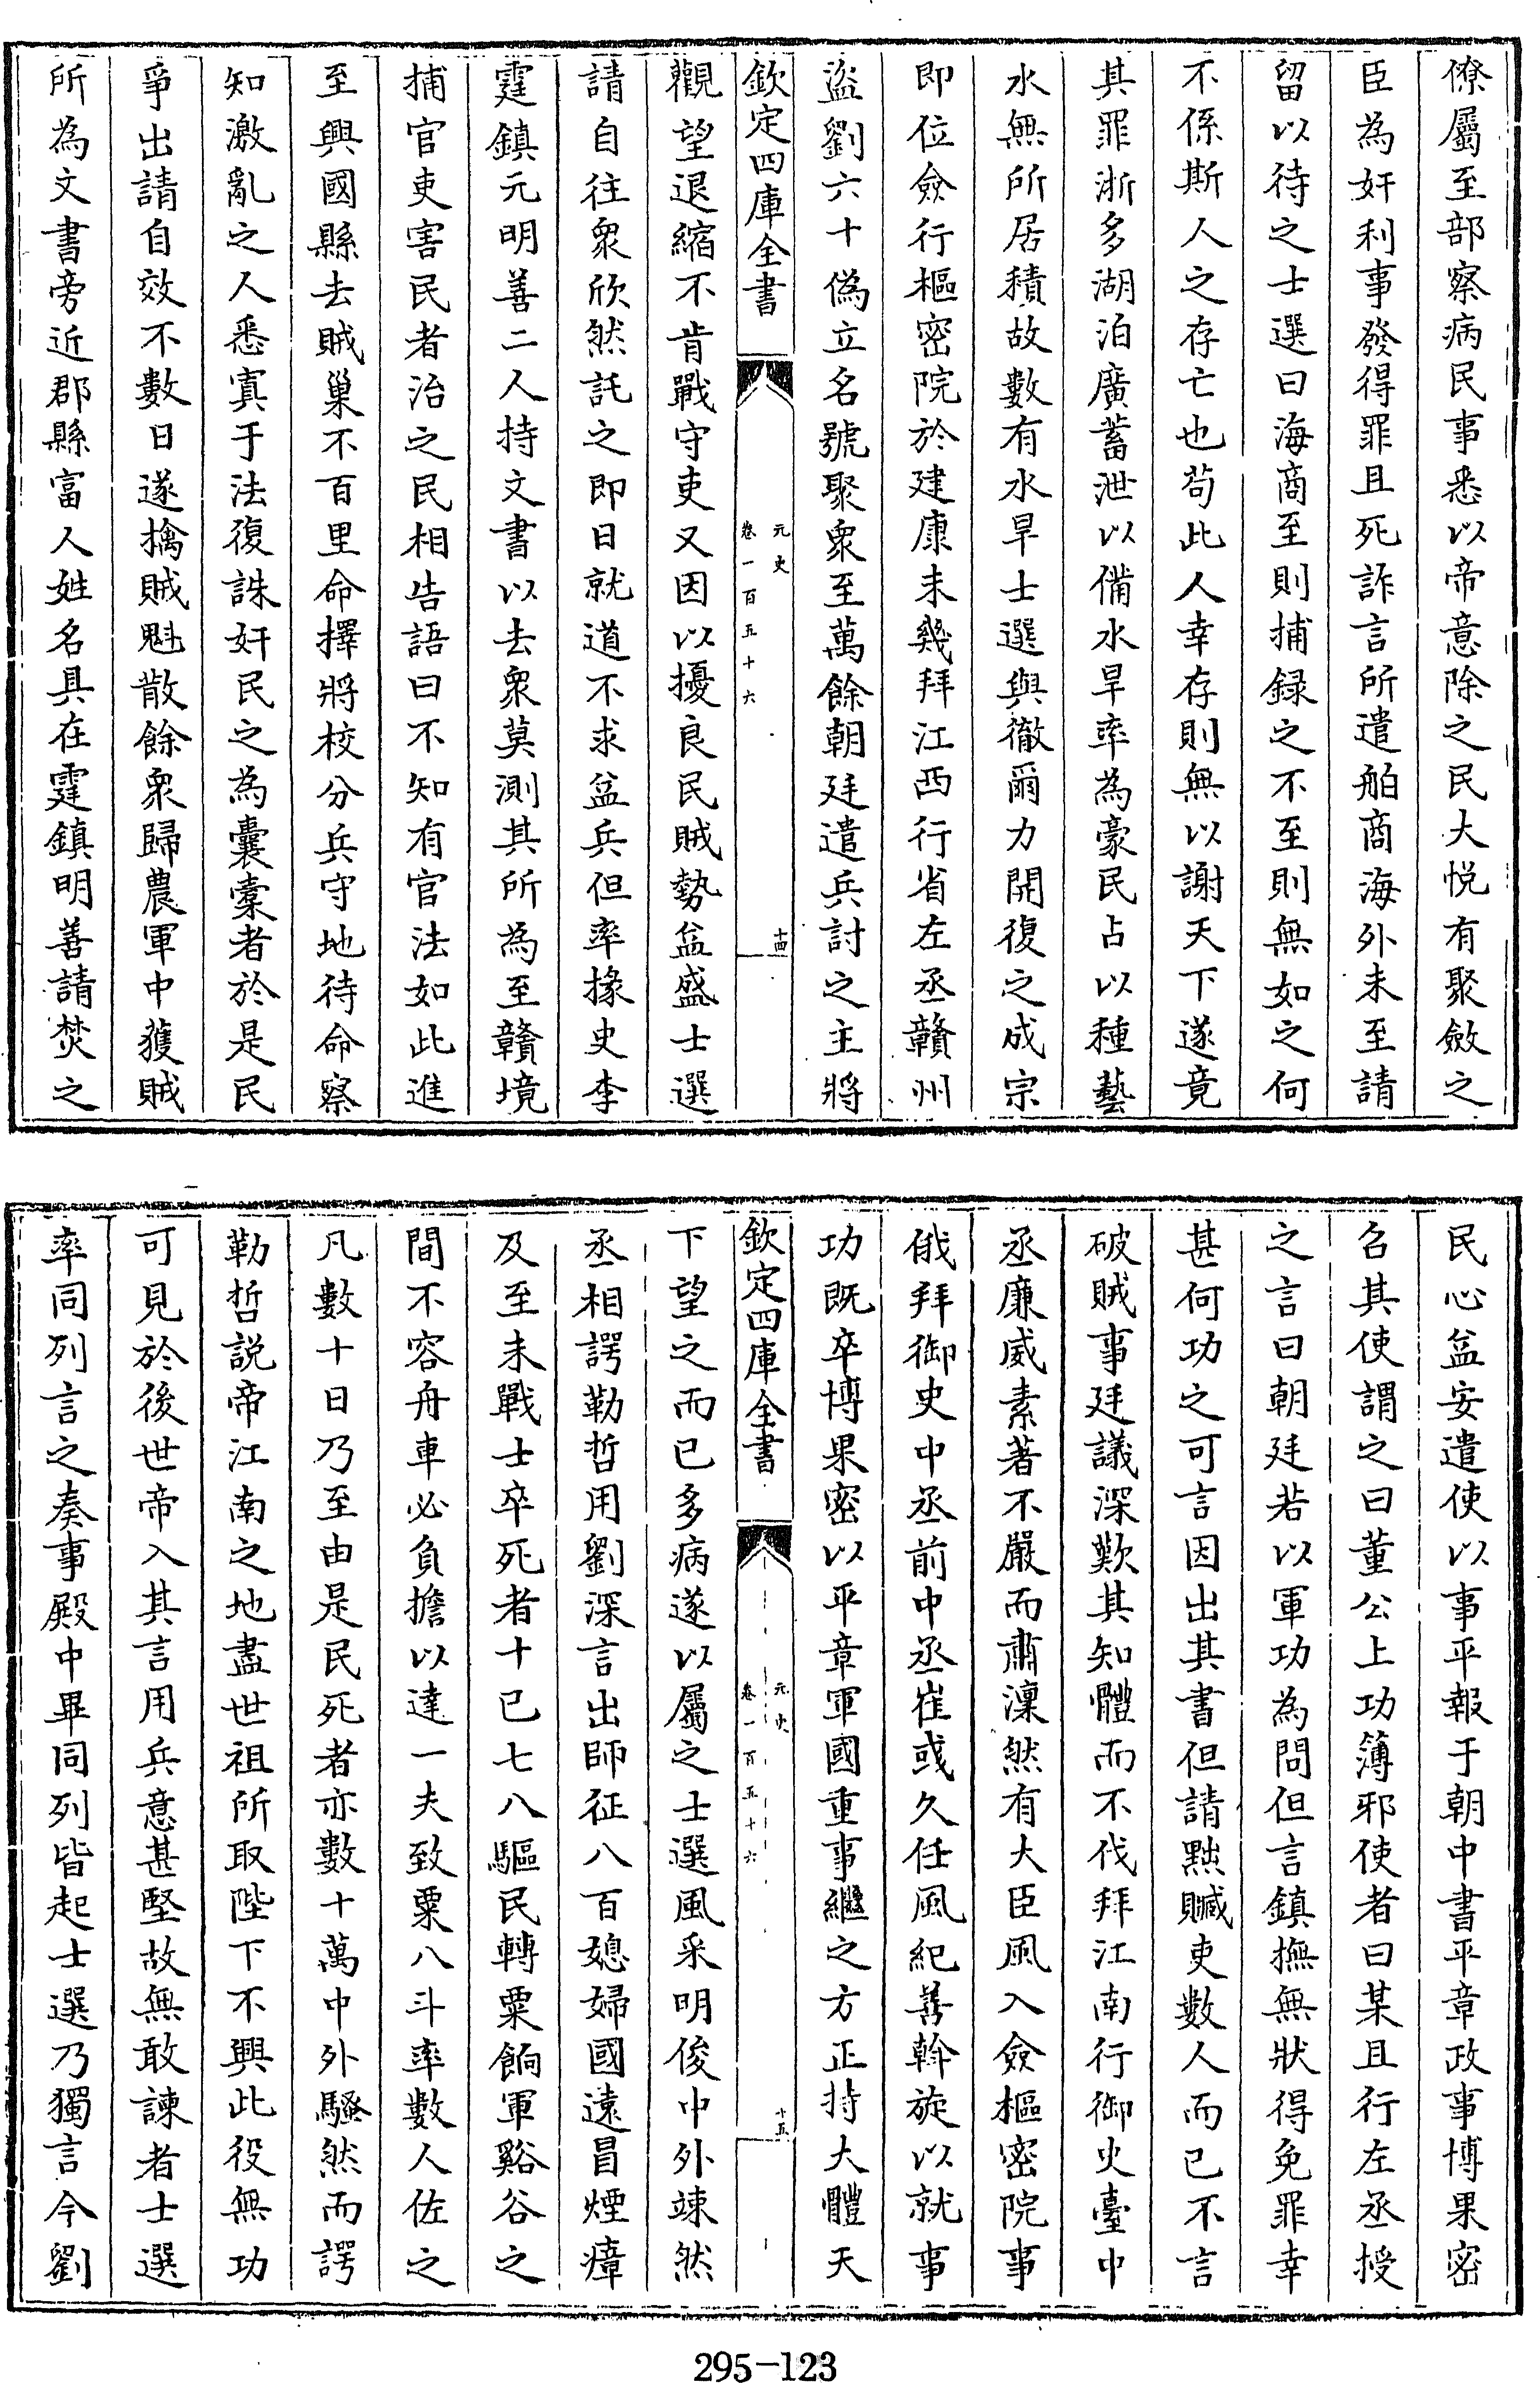 僚屬至部察病民事悉以帝意除之民大悦有聚斂之
臣為奸利事發得罪且死詐言所遣舶商海外未至請
留以待之士選曰海商至則捕録之不至則無如之何
不係斯人之存亡也苟此人幸存則無以謝天下遂竟
其罪浙多湖泊廣蓄泄以備水旱率為豪民占以種藝
水無所居積故數有水旱士選與徹爾力開復之成宗
即位僉行樞密院於建康未幾拜江西行省左丞贛州
盜劉六十偽立名號聚衆至萬餘朝廷遣兵討之主將
欽定四庫全書
元史
卷一百五十六
十四
觀望退縮不肯戰守吏又因以擾良民賊勢益盛士選
請自往衆欣然託之即日就道不求益兵但率掾史李
霆鎮元明善二人持文書以去衆莫測其所為至贛境
捕官吏害民者治之民相告語曰不知有官法如此進
至興國縣去賊巢不百里命擇將校分兵守地待命察
知激亂之人悉寘于法復誅奸民之為囊橐者於是民
爭出請自效不數日遂擒賊魁散餘衆歸農軍中獲賊
所為文書旁近郡縣富人姓名具在霆鎮明善請焚之
民心益安遣使以事平報于朝中書平章政事博果密
召其使謂之曰董公上功簿邪使者曰某且行左丞授
之言曰朝廷若以軍功為問但言鎮撫無狀得免罪幸
甚何功之可言因出其書但請黜贓吏數人而已不言
破賊事廷議深歎其知體而不伐拜江南行御史臺中
丞廉威素著不嚴而肅凜然有大臣風入僉樞密院事
俄拜御史中丞前中丞崔彧久任風紀善斡旋以就事
功既卒博果密以平章軍國重事繼之方正持大體天
欽定四庫全書
元史
卷一百五十六
十五
下望之而已多病遂以屬之士選風采明俊中外竦然
丞相諤勒哲用劉深言出師征八百媳婦國遠冒煙瘴
及至未戰士卒死者十已七八驅民轉粟餉軍谿谷之
間不容舟車必負擔以達一夫致粟八斗率數人佐之
凡數十日乃至由是民死者亦數十萬中外騷然而諤
勒哲説帝江南之地盡世祖所取陛下不興此役無功
可見於後世帝入其言用兵意甚堅故無敢諫者士選
率同列言之奏事殿中畢同列皆起士選乃獨言今劉
295-123